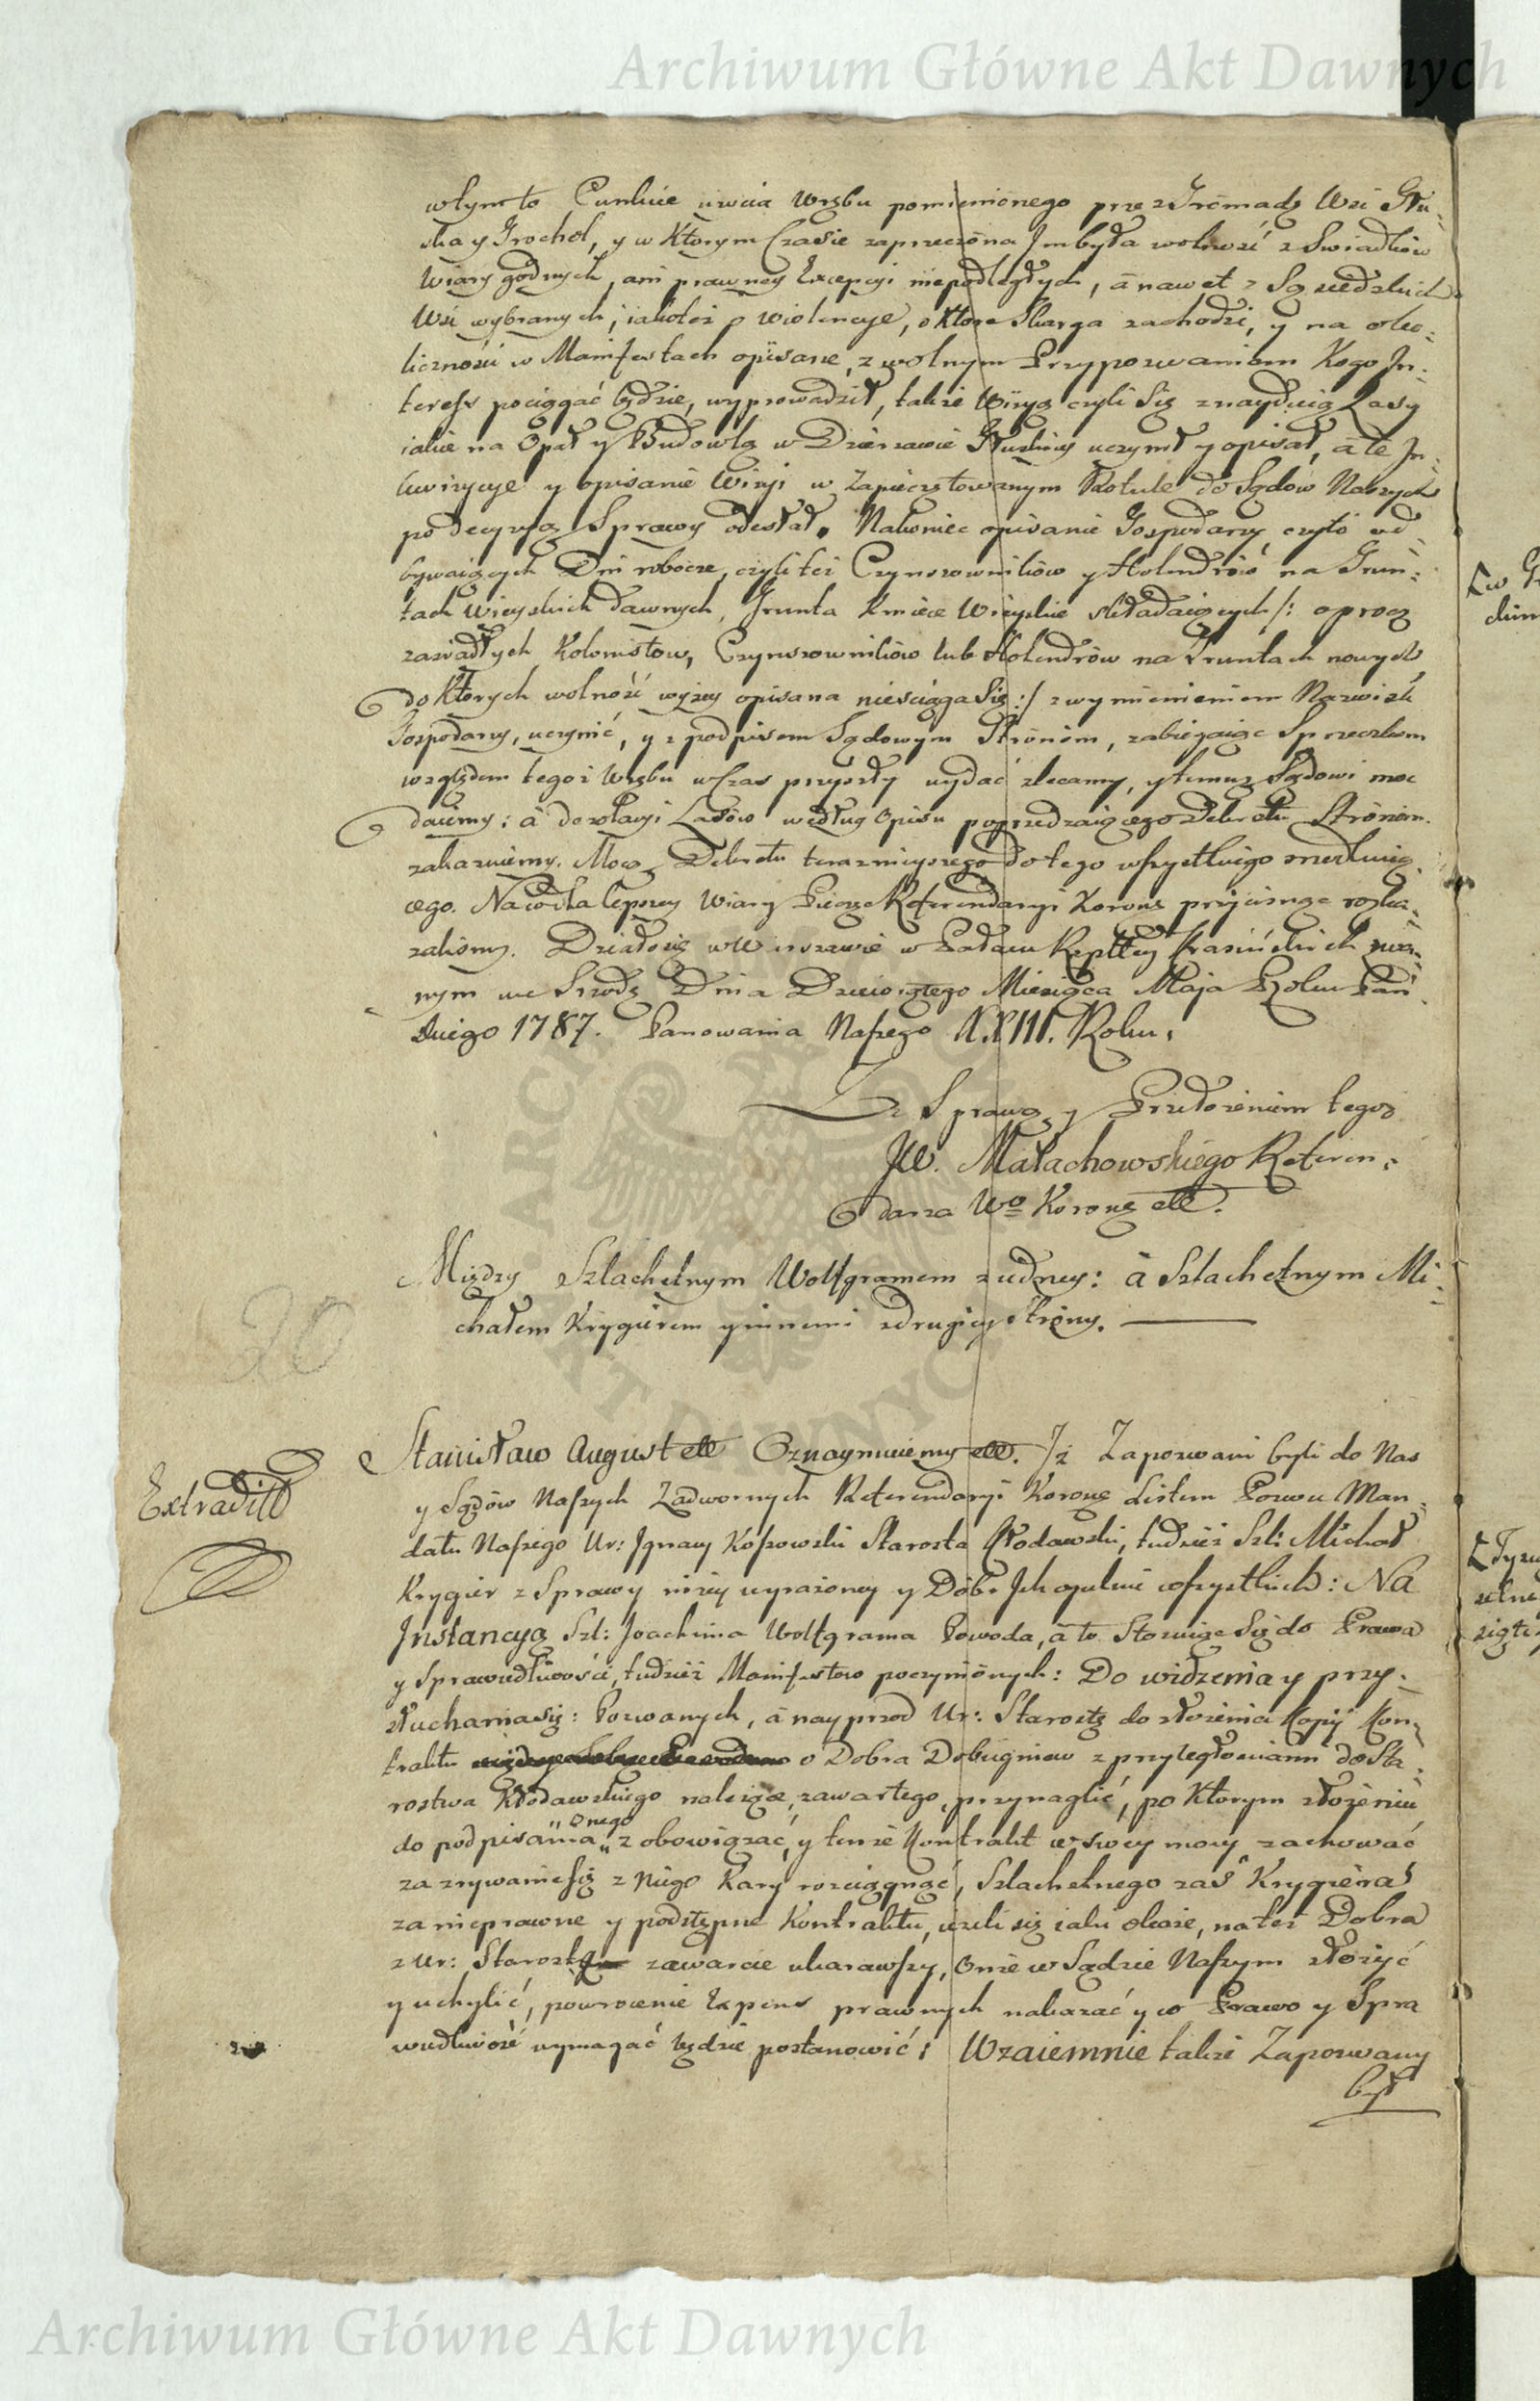 Archiwum Główne Akt Dawnych
w tym to Punkcie użycia Wrębu pomienionego przez Gromadę Wsi Głu-
ska y Grochol, y w Ktorym Czasie zaprzeczona Im była wolność z Swiadków
Wiary godnych, ani prawney Excepcyi niepodległych, á nawet z Sąsiedzkich
Wsi wybranych; iakoteż o wiolencye, o Ktore Skarga zachodzi, y na oko-
liczności w Manifestach opisane, z wolnym Przypozwaniem Kogo In-
teress pociągać będzie, wyprowadził, także Wizyą czyli Się znayduią Lasy
iakie na Opał y Budowlą w Dzierzawie Głuskiey uczynił y opisał, á te In-
kwizycye y opisanie Wizyi w Zapieczętowanym Rotule do Sądów Naszych
pod decyzyą Sprawy odesłał. Nakoniec opisanie Gospodarzy czyto od-
bywaiących Dni robocze, czyli też Czynszowników y Holendrów na Grun-
tach Wieyskich dawnych, Grunta Kmiece Wieyskie składaiących /: oprocz
zasiadłych Kolonistow, Czynszowników lub Holendrów na Gruntach nowych
do Ktorych wolność wyżey opisana nieściąga Się :/ z wymienieniem Nazwisk
Gospodarzy, uczynić, y z podpisem Sądowym Stronom, zabiegaiąc Sprzeczkom
względem tegoż Wrębu w Czas przyszły wydać zlecamy, y temuż Sądowi moc
daiemy; á dezolacyi Lasów według Opisu poprzedzaiącego Dekretu Stronom
zakazuiemy. Mocą Dekretu teraznieyszego do tego wszystkiego
cego. Na co dla lepszey Wiary Pieczęć Referendaryi Koronę przycisnąć rozka-
zaliśmy. Działo się w Warszawie w Pałacu Rzpltey Krasińskich zwa-
nym we Srzodę Dnia Dziewiątego Miesiąca Maja Roku Pań-
skiego 1787. Panowania Naszego XXIII. Roku.
Za Sprawą y Przełożeniem tegoż
JW. Małachowskiego Referen-
darza Wo Koronę etc.
Między Szlachetnym Wolfgramem z iedney: á Szlachetnym Mi-
chałem Krygierem y innemi z drugiey Strony.
20
Extradit
Stanisław August etc Oznaymuiemy etc. Iż Zapozwani byli do Nas
y Sądów Naszych Zadwornych Referendaryi Koronę listem Pozwu Man-
datu Naszego Ur: Ignacy Kossowski Starosta Kłodawski, tudzież Szl: Michał
Krygier z Sprawy niżey wyrażoney y Dóbr Ich ogulnie wszystkich: Na
Instancyą Szl: Joachima Wolfgrama Powoda, á to Stosuiąc Się do Prawa
y Sprawiedliwości, tudzież Manifestow poczynionych: Do widzenia y przy-
słuchania się: Pozwanych, á nayprzod Ur: Starostę do złożenia Kopij Kon-
traktu o Dobra Dobiegniew z przyległościami do Sta-
rostwa Kłodawskiego należące, zawartego, przynaglić, po Ktorym złożeniu
do podpisania onego zobowiązać, y tenże Kontrakt w swey mocy zachować
za zrywanie się z Niego Kary rozciągnąć, Szlachetnego zaś Krygiera
za nieprawne y podstępne Kontraktu, ieżeli się iaki okaże, na też Dobra
z Ur: Starostą zawarcie ukarawszy, onże w Sądzie Naszym złożyć
y uchylić, powrocenie Expens prawnych nakazać y co Prawo y Spra
wiedliwość wymagać będzie postanowić; Wzaiemnie także Zapozwany
był
Archiwum Główne Akt Dawnych